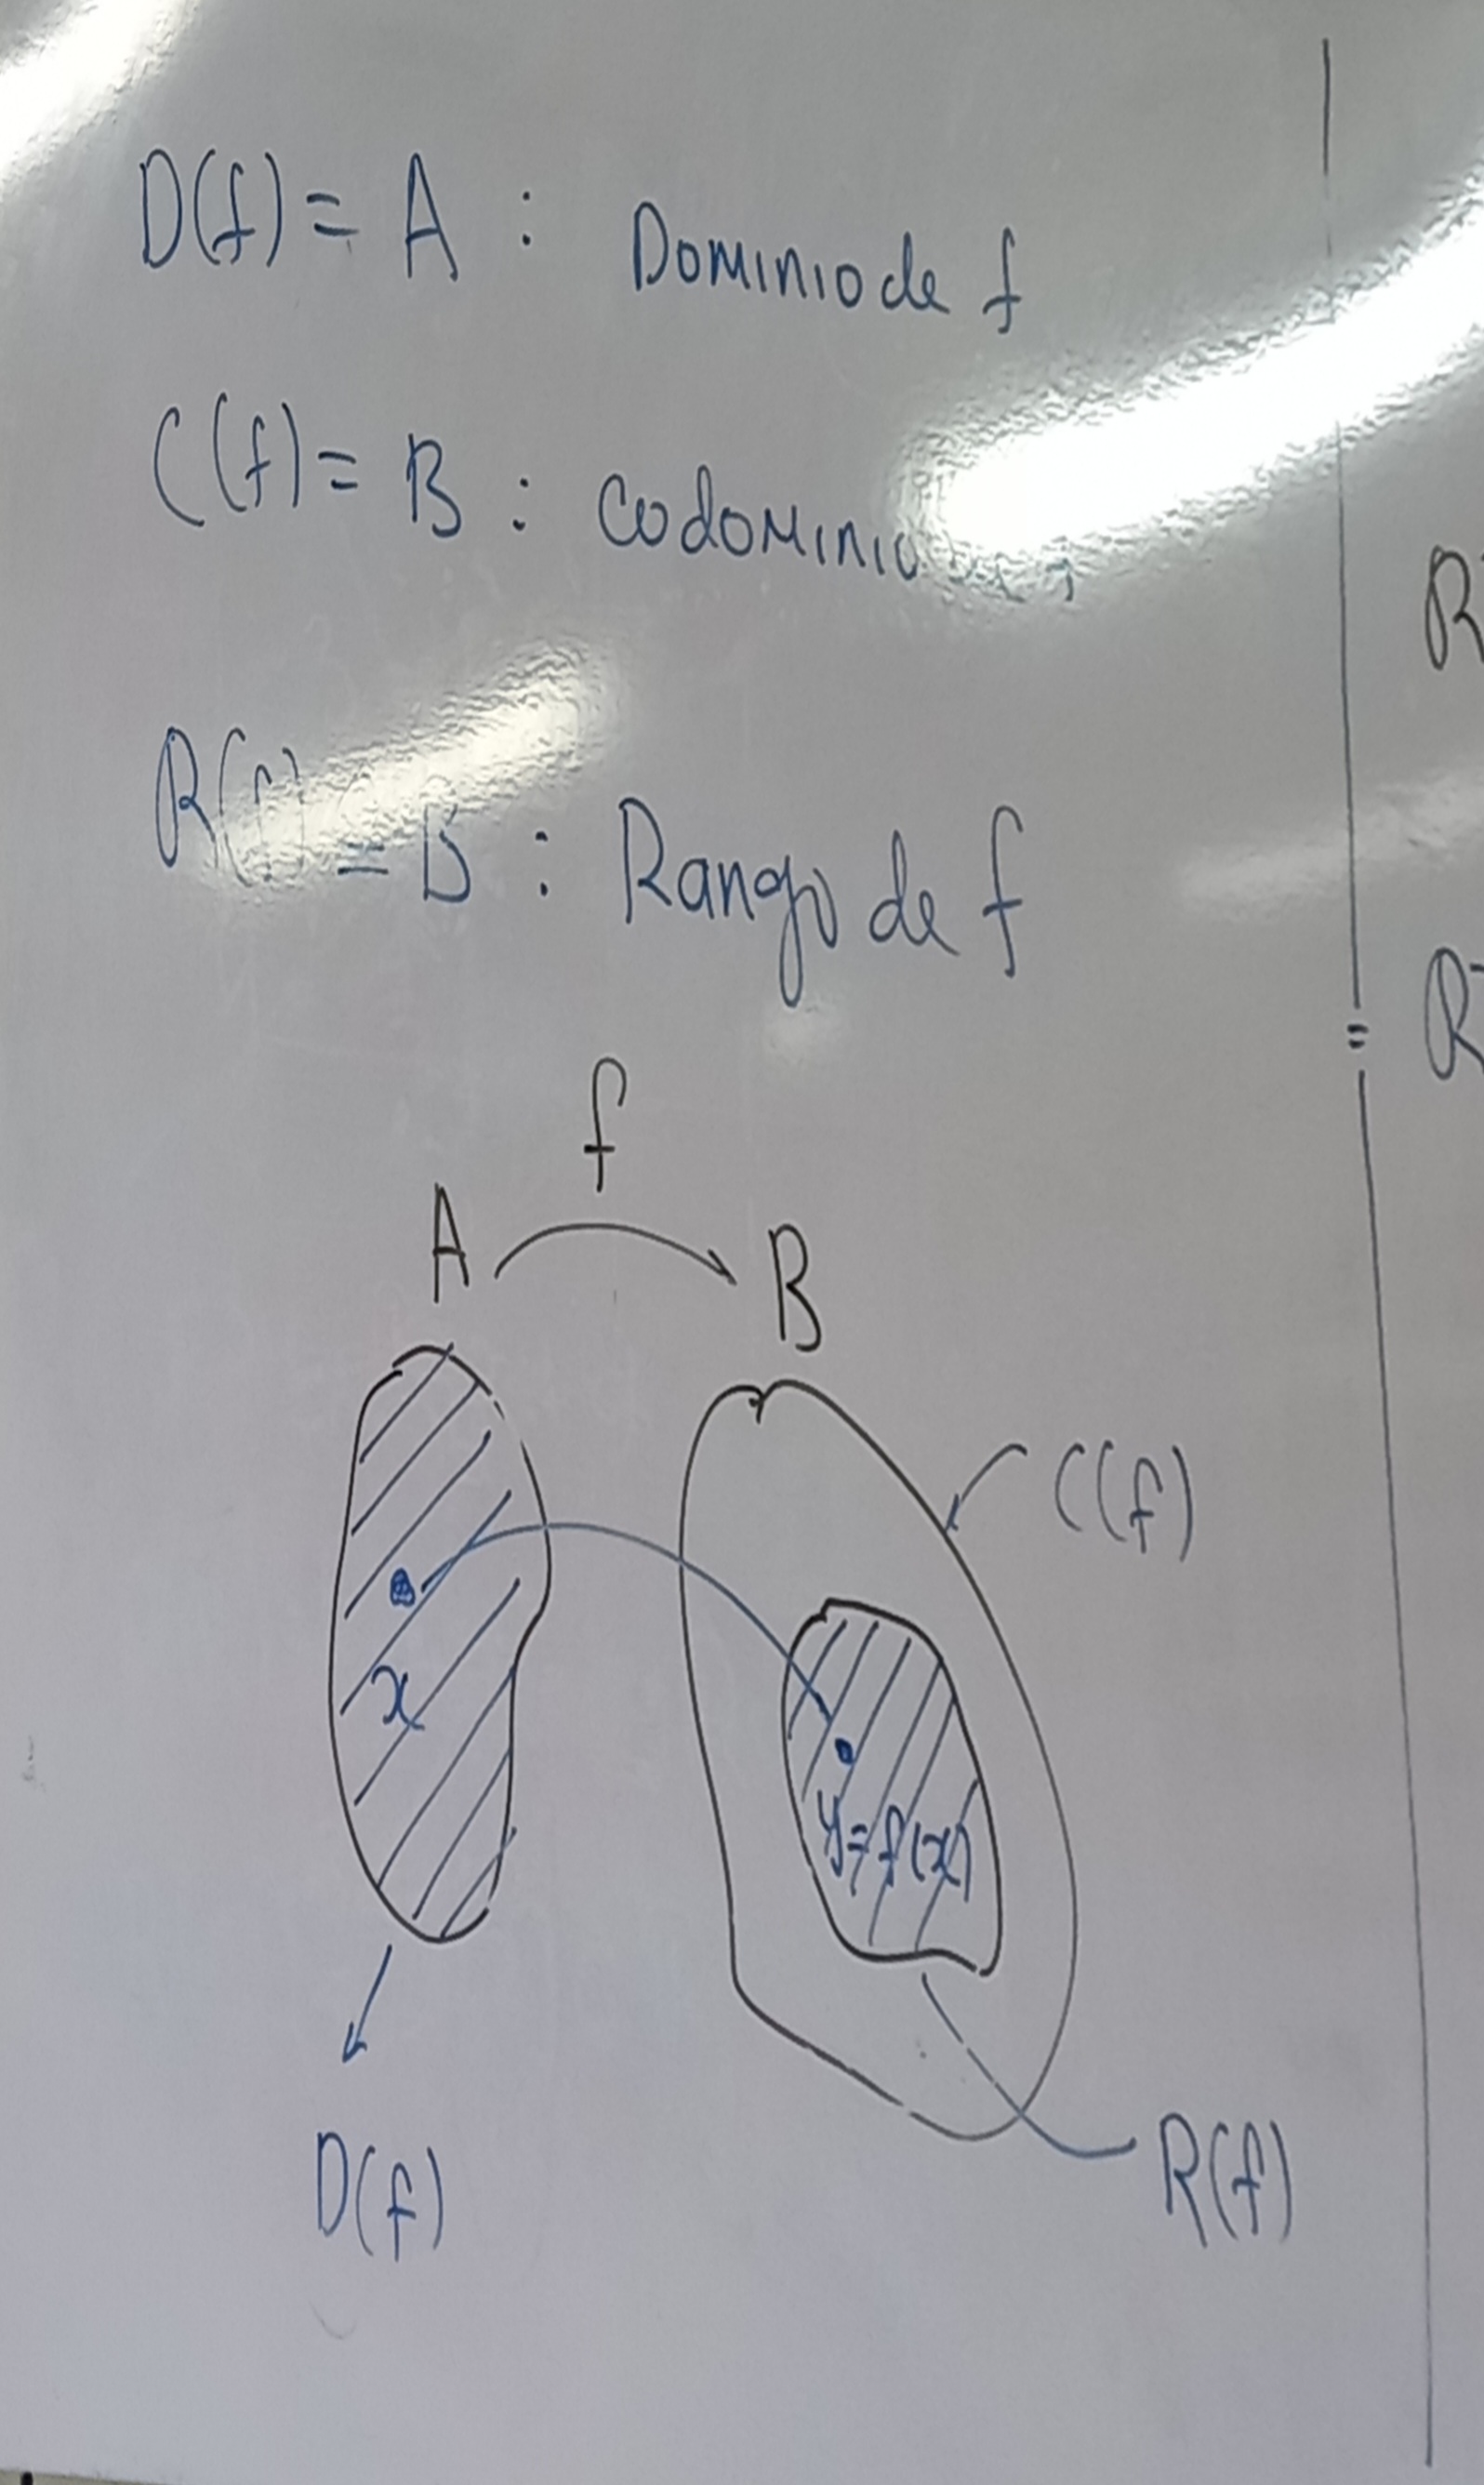 D(f) = A : Dominio de f
C(f) = B : Codominio
R(f) ⊆ B : Rango de f
f
A
B
C(f)
x
y = f(x)
D(f)
R(f)
R
=
R